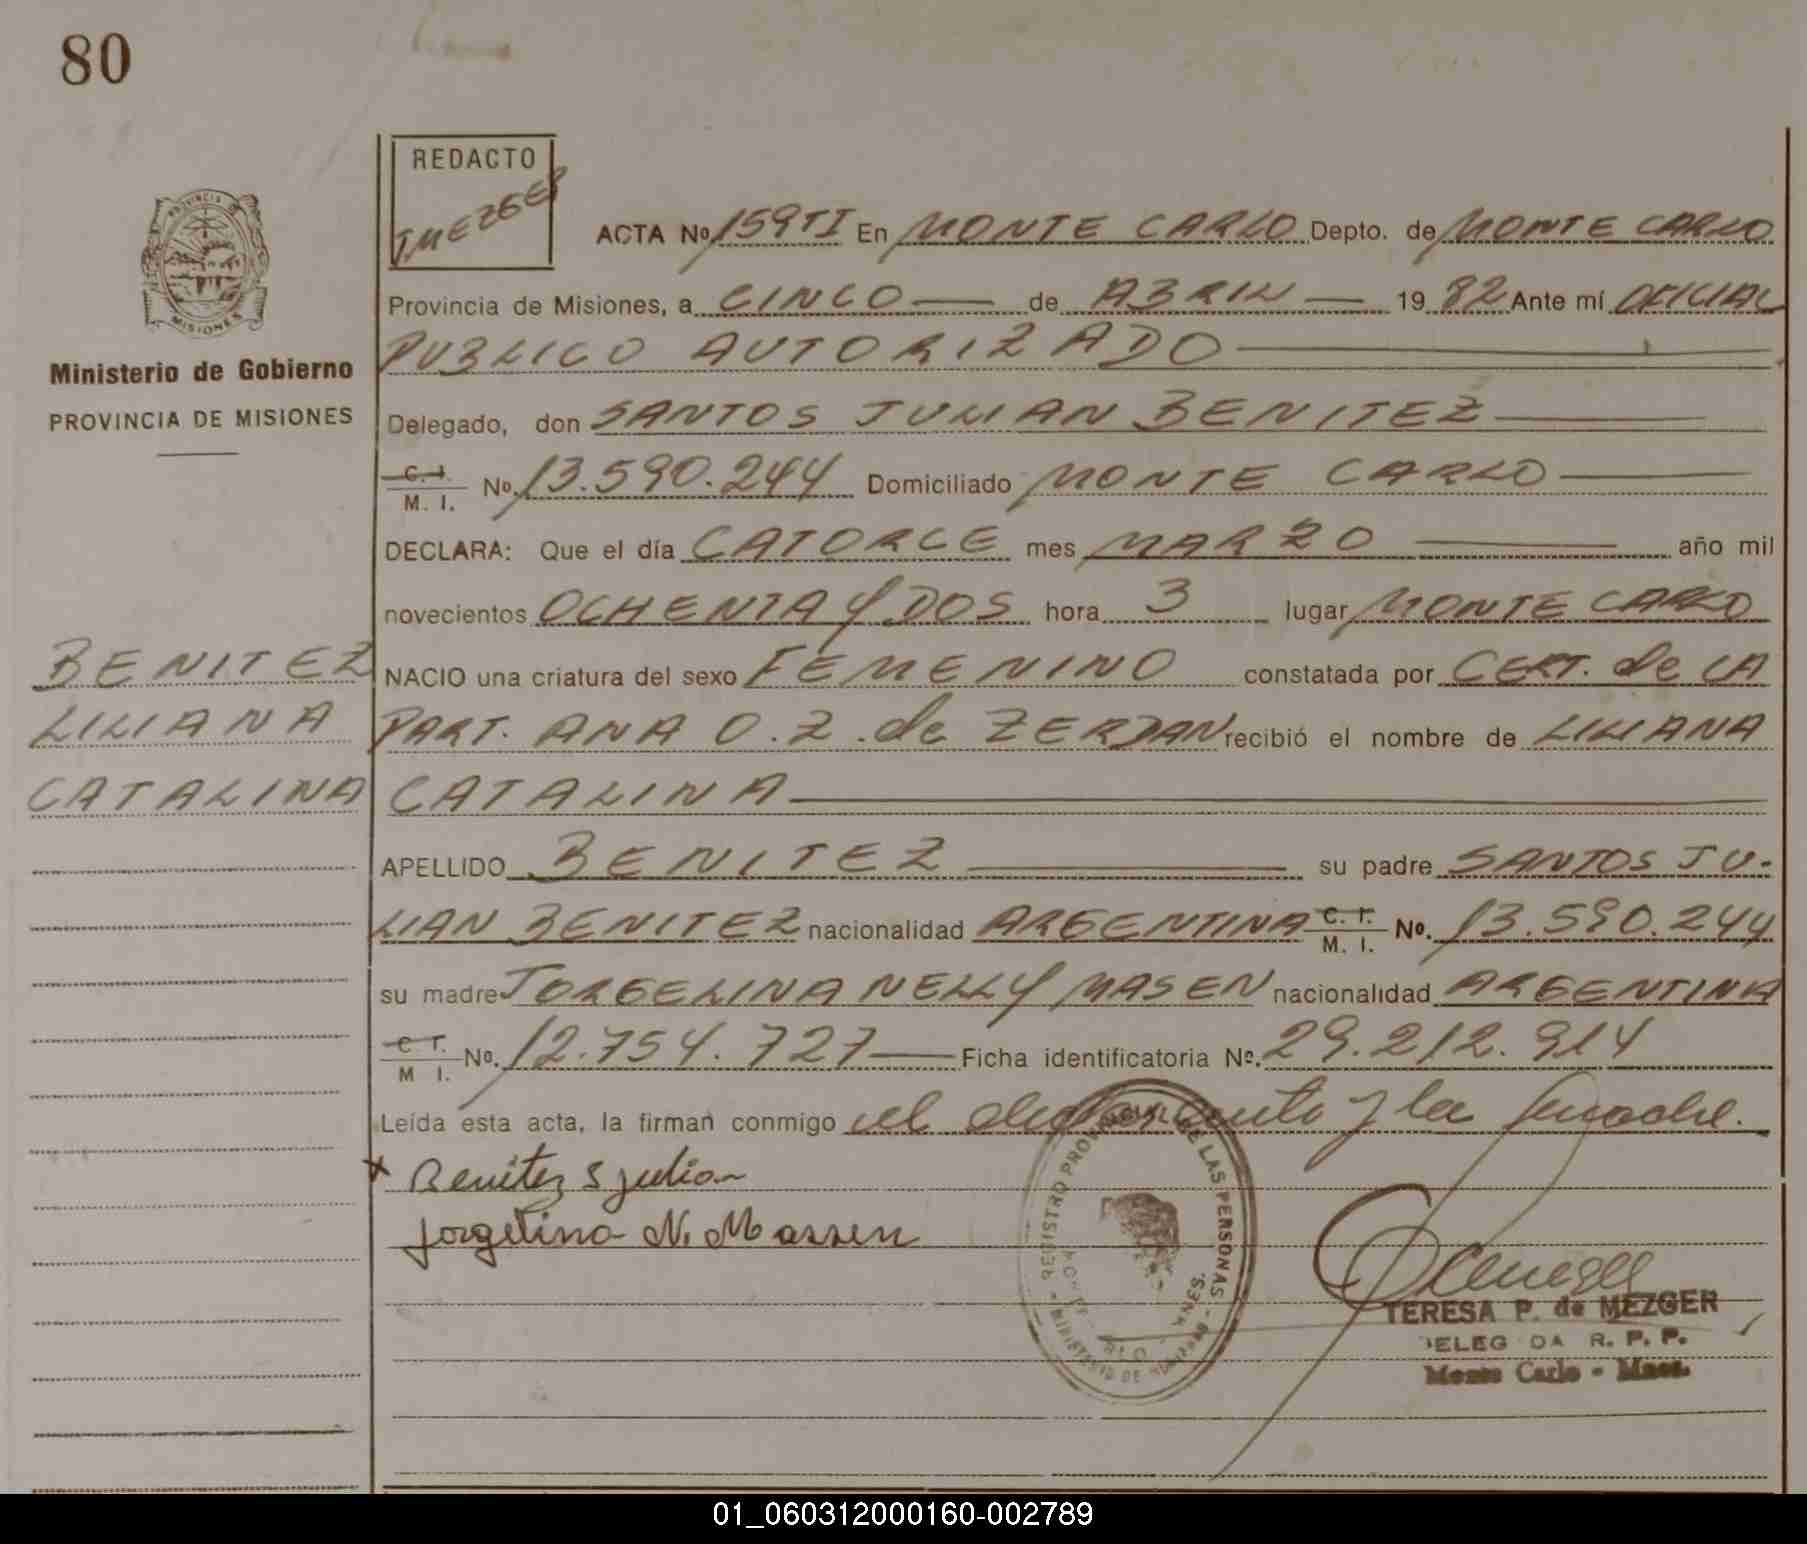 80
REDACTO
T MEZGER
ACTA No 159TI En MONTE CARLO Depto. de MONTE CARLO
PROVINCIA DE
MISIONES
Provincia de Misiones, a CINCO — de ABRIL — 19 82 Ante mí OFICIAL
Ministerio de Gobierno
PUBLICO AUTORIZADO
PROVINCIA DE MISIONES
Delegado, don SANTOS JULIAN BENITEZ
C. I. M. I. No. 13.590.244 Domiciliado MONTE CARLO
DECLARA: Que el día CATORCE mes MARZO año mil
novecientos OCHENTA Y DOS hora 3 lugar MONTE CARLO
BENITEZ
NACIO una criatura del sexo FEMENINO constatada por CERT. de LA
LILIANA
PART. ANA O. Z. de ZERDAN recibió el nombre de LILIANA
CATALINA
CATALINA
APELLIDO BENITEZ su padre SANTOS JU-
LIAN BENITEZ nacionalidad ARGENTINA C. I. M. I. No. 13.590.244
su madre JORGELINA NELLY MASEN nacionalidad ARGENTINA
C. I. M. I. No. 12.754.727 — Ficha identificatoria No. 29.212.914
Leída esta acta, la firman conmigo el y la madre.
x Benitez S julian
Jorgelina N. Massen
REGISTRO PROVINCIAL DE LAS PERSONAS
MINISTERIO DE
TERESA P. de MEZGER
R. P. P.
Monte Carlo - Mnes.
01_060312000160-002789